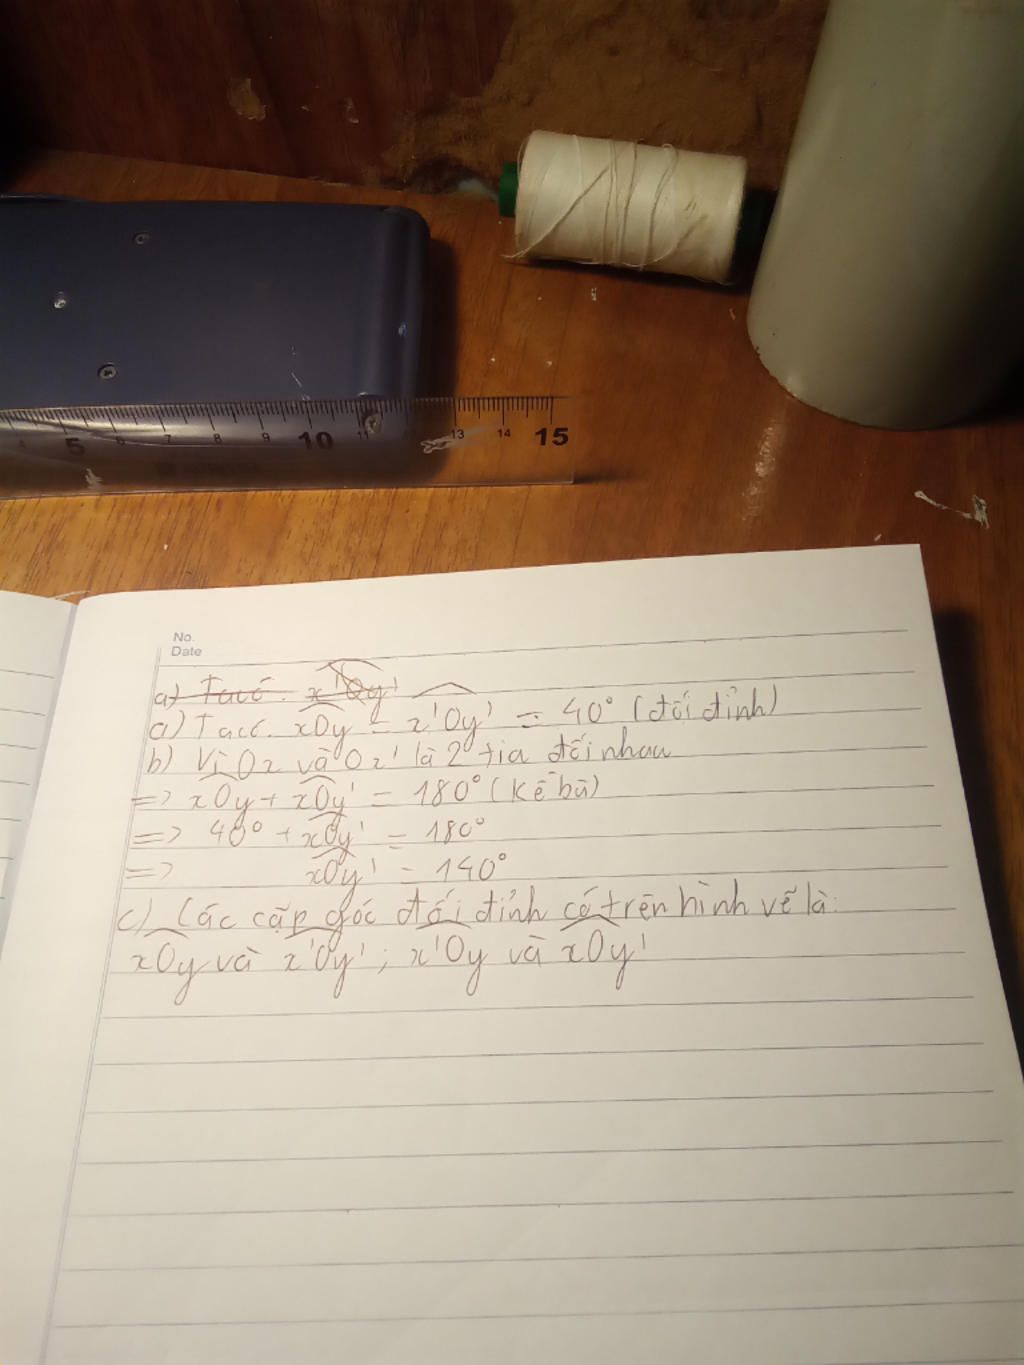 4 5 6 7 8 9 10 11 13 14 15
No.
Date
a) Ta có: x'Oy'
a) Ta có: xOy = x'Oy' = 40° (đối đỉnh)
b) Vì Ox và Ox' là 2 tia đối nhau
=> xOy + xOy' = 180° (kề bù)
=> 40° + xOy' = 180°
=> xOy' = 140°
c) Các cặp góc đối đỉnh có trên hình vẽ là:
xOy và x'Oy'; x'Oy và xOy'